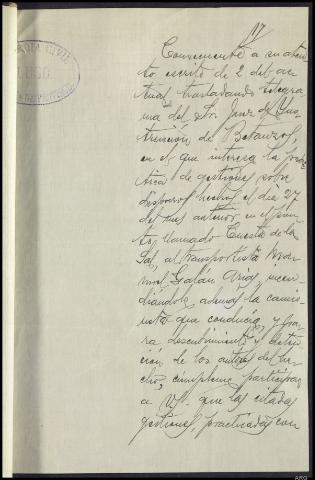 17
GUARDIA CIVIL
LUGO
Consecuente a su aten-
to escrito de 2 del ac-
tual, trasladando telegra-
ma del Sr. Juez de Ins-
trucción de Betanzos,
en el que interesa la prác-
tica de gestiones sobre
disparos hechos el día 27
del mes anterior en el pun-
to llamado Cuesta de la
Sal, al transportista Ma-
nuel Galán Arias, incen-
diándole además la camio-
neta que conducía, y pa-
ra descubrimiento y deten-
ción de los autores del he-
cho, cúmpleme participar
a V. que las citadas
gestiones, practicadas con
ARG